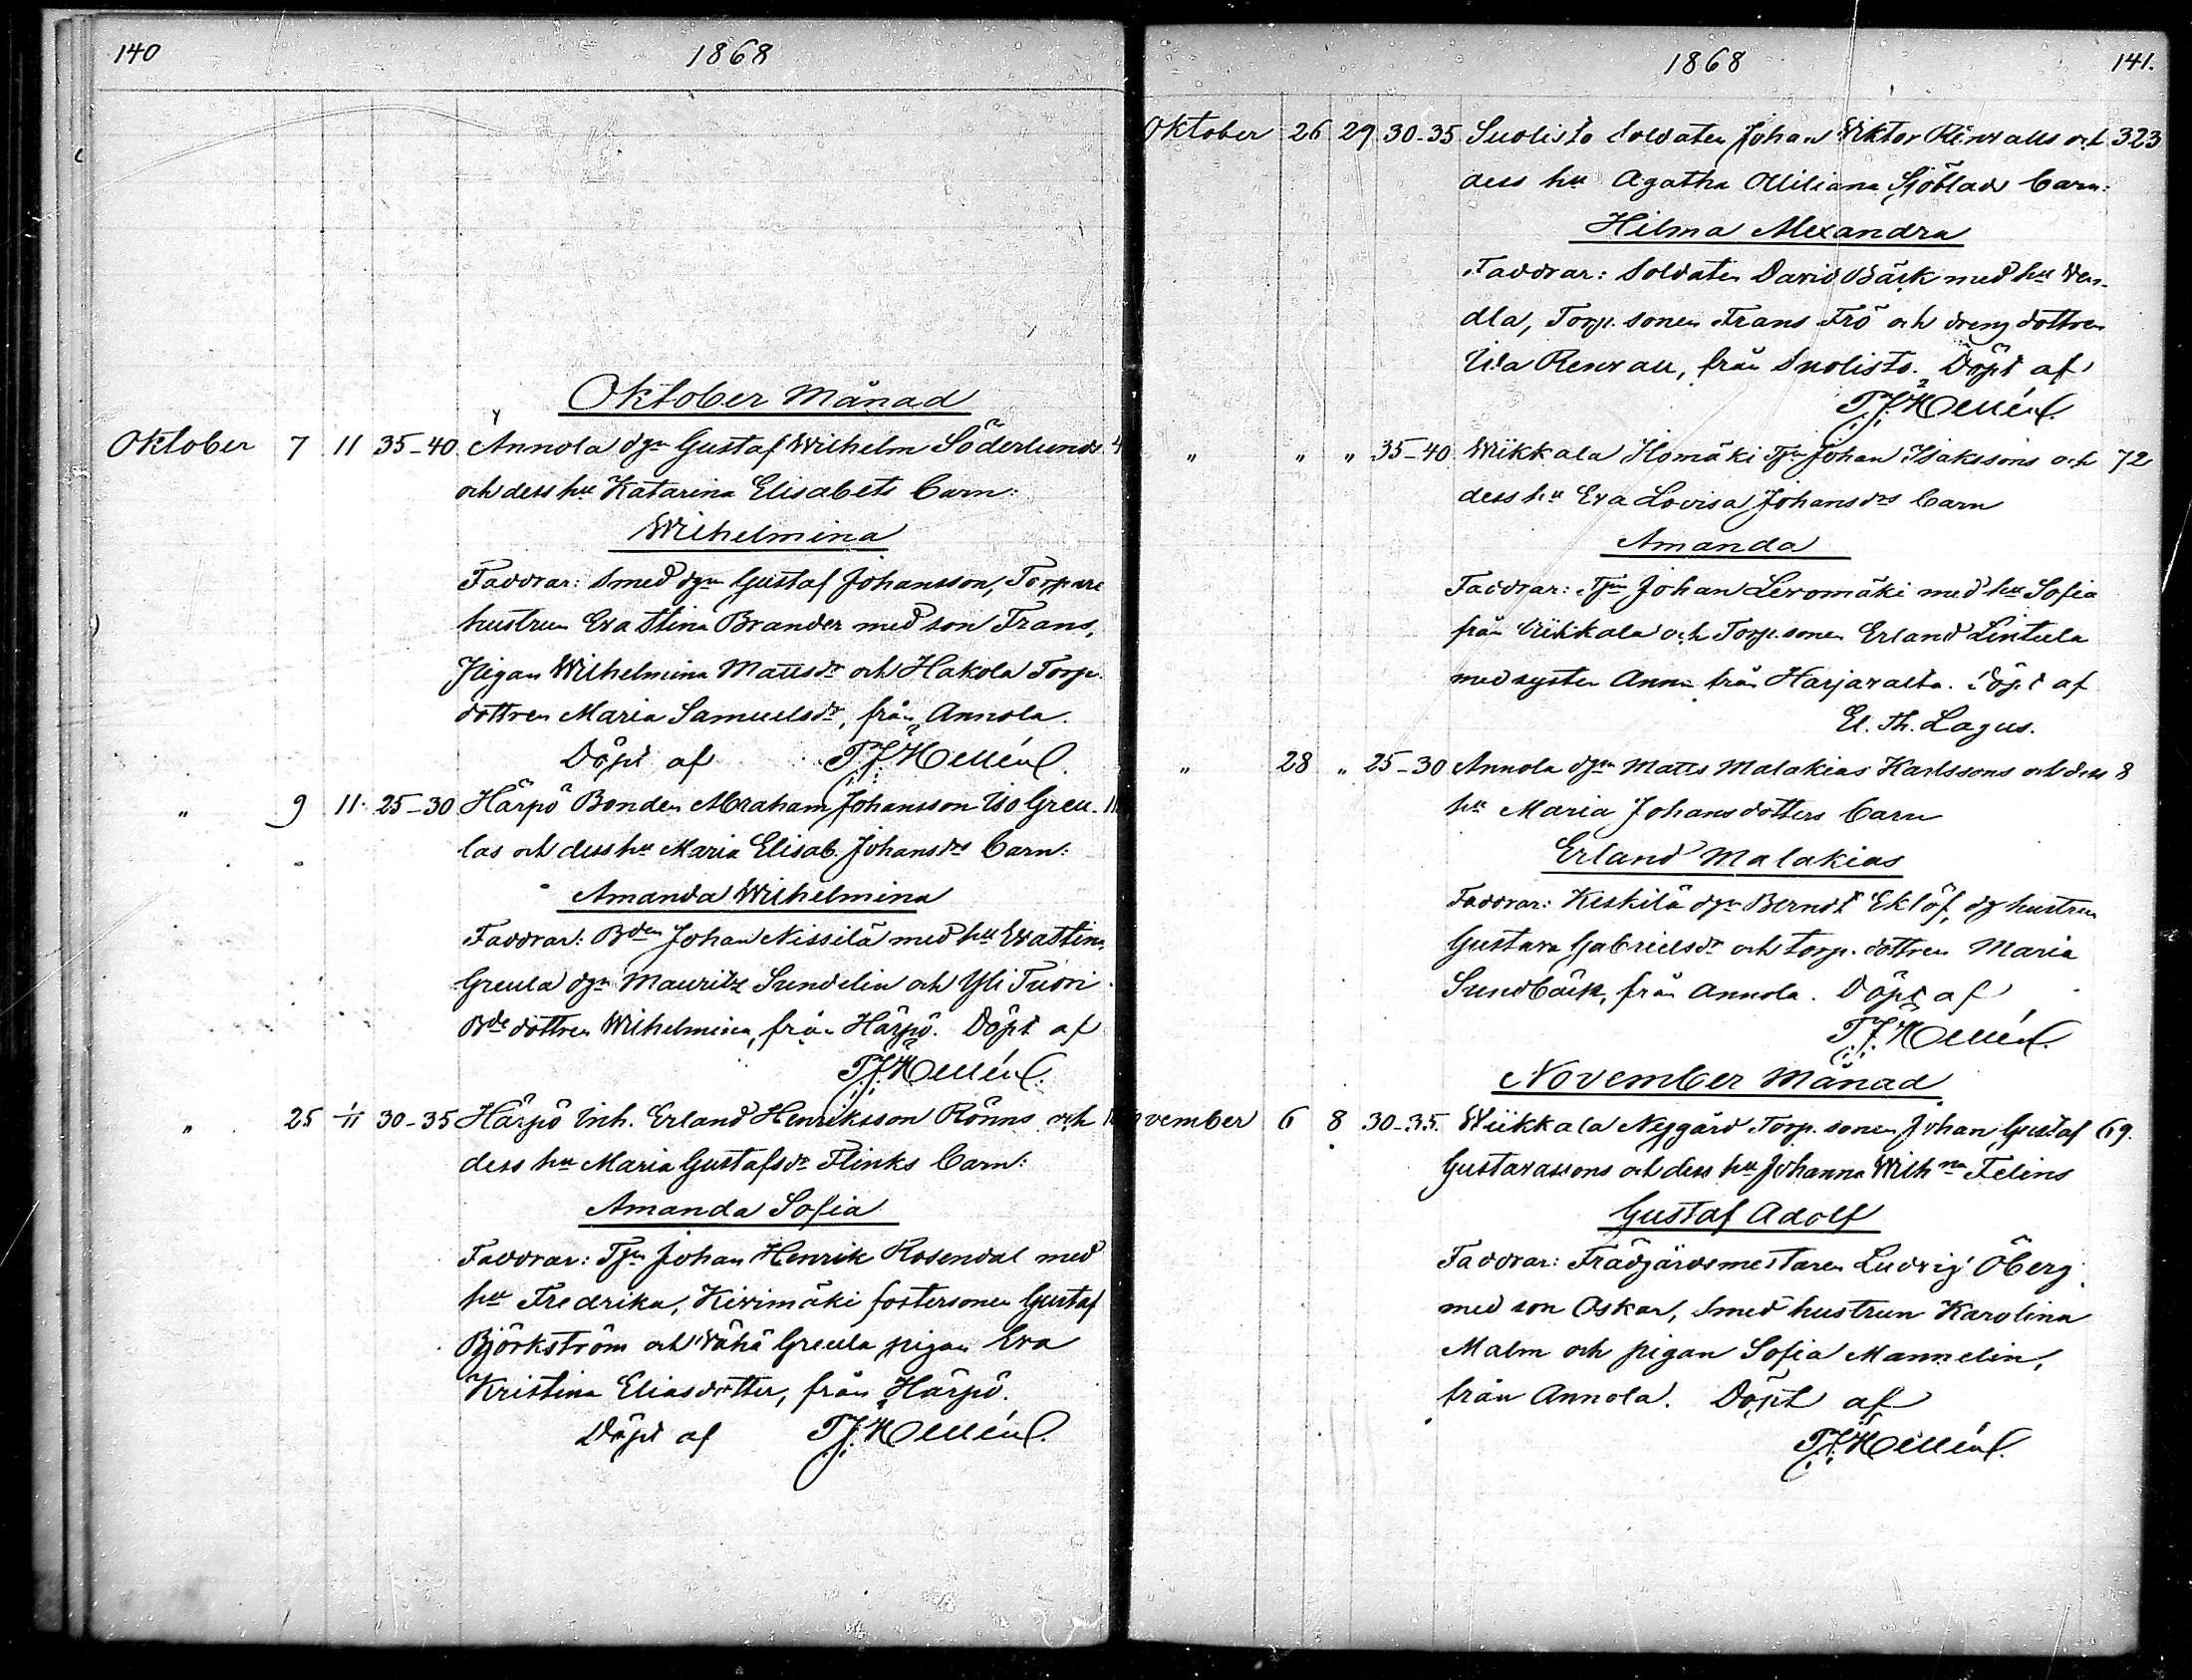 140
1868
Oktober Månad
Oktober 7 11 35-40 Annola dgn Gustaf Wilhelm Söderlunds 4
och dess hu Katarina Elisabets barn:
Wilhelmina
Faddrar: Smed dgn Gustaf Johansson, Torpare
hustrun Eva Stina Brander med son Frans,
Pigan Wilhelmina Mattsdr och Hakola Torp.
dottren Maria Samuelsdr, från Annola.
Döpt af T.J. Hollmén.
" 9 11 25-30 Härpö Bonden Abraham Johansson Iso Greu- 11
las och dess hu Maria Elisab. Johansdrs barn:
Amanda Wilhelmina
Faddrar: Bden Johan Nissilä med hu Eva Stina,
Greula dgn Mauritz Sundelin och Yli Tuori
Bde dottren Wilhelmina, från Härpö. Döpt af
T.J. Hollmén.
" 25 1/11 30-35 Härpö Inh. Erland Henriksson Rönns och
dess hu Maria Gustafsdr Flinks barn:
Amanda Sofia
Faddrar: Tjn Johan Henrik Rosendal med
hu Fredrika, Kivimäki fostersonen Gustaf
Björkström och Vähä Greula pigan Eva
Kristina Eliasdotter, från Härpö.
Döpt af T.J. Hollmén.
1868
141.
Oktober 26 29 30-35 Suolisto Soldaten Johan Wiktor Renvalls och 323
dess hu Agatha Miliana Sjöblads barn:
Hilma Alexandra
Faddrar: Soldaten David Bäck med hu Ven-
dla, Torp. sonen Frans Frö och dreng dottren
Ida Renvall, från Suolisto. Döpt af
T.J. Hollmén.
" " " 35-40 Wiikkala Isomäki Tjn Johan Isakssons och 72
dess hu Eva Lovisa Johansdrs barn
Amanda
Faddrar: Tjn Johan Levomäki med hu Sofia
från Viikkala och Torp. sonen Erland Lintula
med syster Anna från Harjavalta. Döpt af
El. Th. Lagus.
" 28 " 25-30 Annola dgn Matts Malakias Karlssons och dess 8
hu Maria Johansdotters barn
Erland Malakias
Faddrar: Keskilä dgn Berndt Eklöf, dg hustrun
Gustava Gabrielsdr och torp. dottren Maria
Sundbäck, från Annola. Döpt af
T.J. Hollmén.
November Månad
vember 6 8 30-35. Wiikkala Nygård Torp. sonen Johan Gustaf 69.
Gustavssons och dess hu Johanna Wilhna Felins
Gustaf Adolf
Faddrar: Trädgårdsmestaren Ludvig Öberg
med son Oskar, Smed hustrun Karolina
Malm och pigan Sofia Mannelin,
från Annola. Döpt af
T.J. Hollmén.